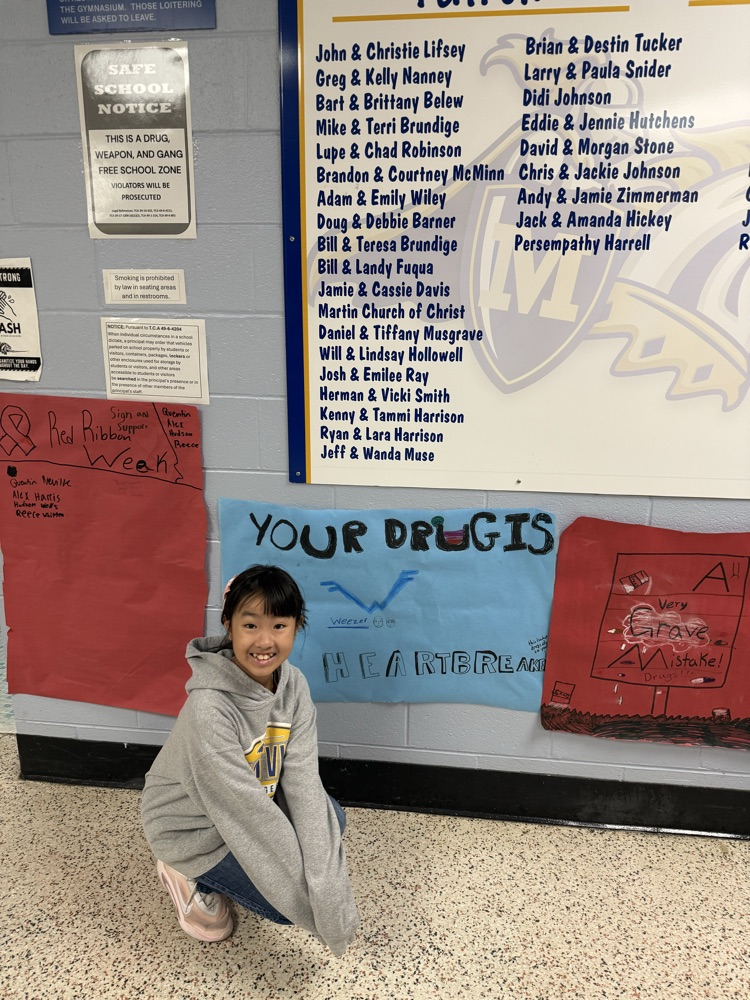 THE GYMNASIUM. THOSE LOITERING
WILL BE ASKED TO LEAVE.
SAFE
SCHOOL
NOTICE
THIS IS A DRUG,
WEAPON, AND GANG
FREE SCHOOL ZONE
VIOLATORS WILL BE
PROSECUTED
Smoking is prohibited
by law in seating areas
and in restrooms.
NOTICE: Pursuant to T.C.A 49-6-4204
When individual circumstances in a school
dictate, a principal may order that vehicles
parked on school property by students or
visitors, containers, packages, lockers or
other enclosures used for storage by
students or visitors, and other areas
accessible to students or visitors
be searched in the principal's presence or in
the presence of other members of the
principal's staff.
John & Christie Lifsey
Greg & Kelly Nanney
Bart & Brittany Belew
Mike & Terri Brundige
Lupe & Chad Robinson
Brandon & Courtney McMinn
Adam & Emily Wiley
Doug & Debbie Barner
Bill & Teresa Brundige
Bill & Landy Fuqua
Jamie & Cassie Davis
Martin Church of Christ
Daniel & Tiffany Musgrave
Will & Lindsay Hollowell
Josh & Emilee Ray
Herman & Vicki Smith
Kenny & Tammi Harrison
Ryan & Lara Harrison
Jeff & Wanda Muse
Brian & Destin Tucker
Larry & Paula Snider
Didi Johnson
Eddie & Jennie Hutchens
David & Morgan Stone
Chris & Jackie Johnson
Andy & Jamie Zimmerman
Jack & Amanda Hickey
Persempathy Harrell
M
Red Ribbon
Week
Sign an
Support
Quentin
Alex
Hudson
Reece
Quentin
Alex Harris
Hudson
Reece
YOUR DRUG IS
W
Weezer
HEARTBREAKER
A
Very
Grave
Mistake!
Drugs!!